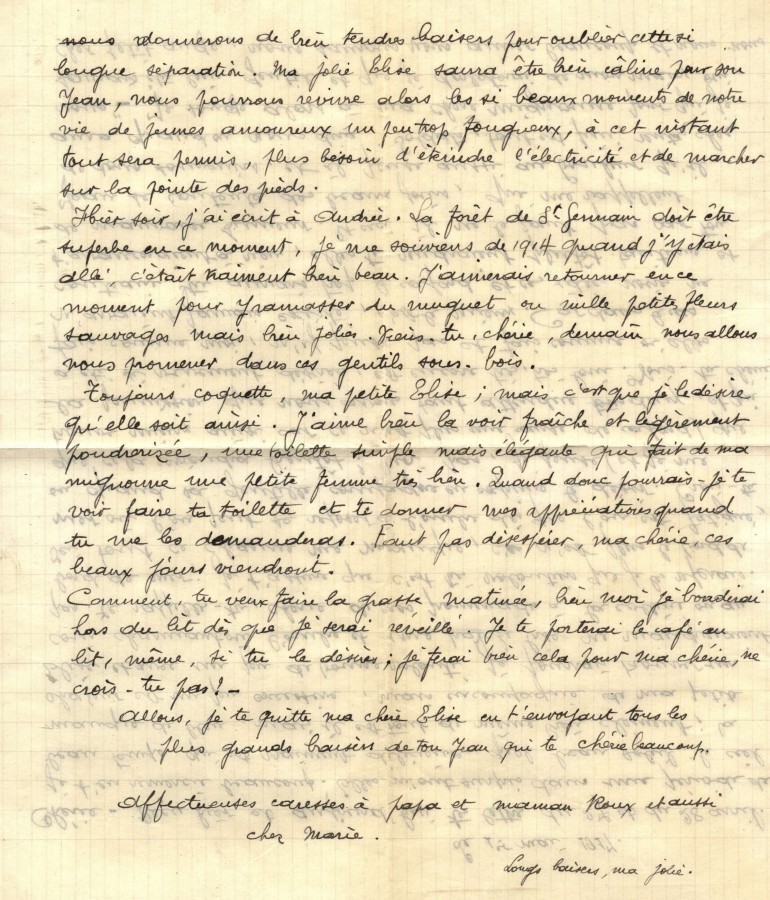 nous donnerons de bien tendres baisers pour oublier cette si
longue séparation. Ma jolie Elise saura être bien câline pour son
Jean, nous pourrons revivre alors les si beaux moments de notre
vie de jeunes amoureux un peu trop fougueux, à cet instant
tout sera permis, plus besoin d'éteindre l'électricité et de marcher
sur la pointe des pieds.
Hier soir, j'ai écrit à Andrée. La forêt de St Germain doit être
superbe en ce moment, je me souviens de 1914 quand j'y étais
allé, c'était vraiment bien beau. J'aimerais retourner en ce
moment pour y ramasser du muguet ou mille petites fleurs
sauvages mais bien jolies. Vois-tu, chérie, demain nous allons
nous promener dans ces gentils sous-bois.
Toujours coquette, ma petite Elise ; mais c'est que je le désire
qu'elle soit ainsi. J'aime bien la voir fraîche et légèrement
poudrerizée, une toilette simple mais élégante qui fait de ma
mignonne une petite femme très bien. Quand donc pourrais-je te
voir faire ta toilette et te donner mes appréciations quand
tu me les demanderas. Faut pas désespérer, ma chérie, ces
beaux jours viendront.
Comment, tu veux faire la grasse matinée, bien moi je bondirai
hors du lit dès que je serai réveillé. Je te porterai le café au
lit, même, si tu le désires ; je ferai bien cela pour ma chérie, ne
crois-tu pas ! -
Allons, je te quitte ma chère Elise en t'envoyant tous les
plus grands baisers de ton Jean qui te chérie beaucoup.
Affectueuses caresses à papa et maman Roux et aussi
chez Marie.
Longs baisers, ma jolie.